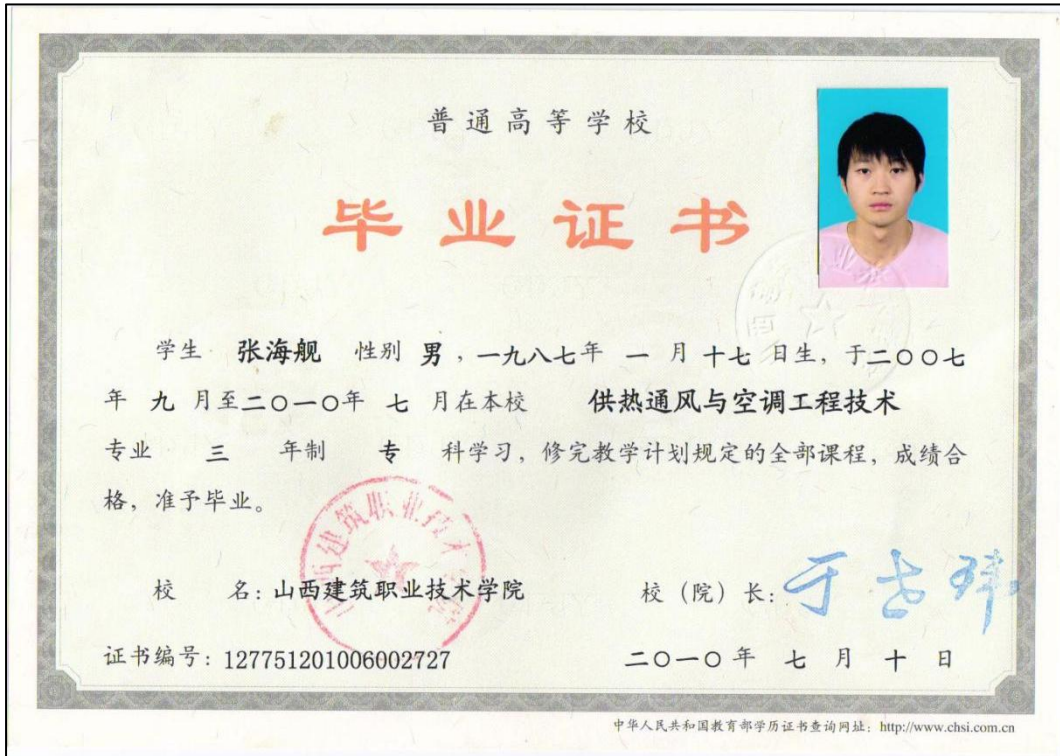 普通高等学校
毕业证书
学生 张海舰 性别 男，一九八七年 一 月 十七 日生，于二〇〇七
年 九 月至二〇一〇年 七 月在本校 供热通风与空调工程技术
专业 三 年制 专 科学习，修完教学计划规定的全部课程，成绩合
格，准予毕业。
山西建筑职业技术学院
校 名：山西建筑职业技术学院 校（院）长：
证书编号：127751201006002727 二〇一〇年 七 月 十 日
中华人民共和国教育部学历证书查询网址：http://www.chsi.com.cn